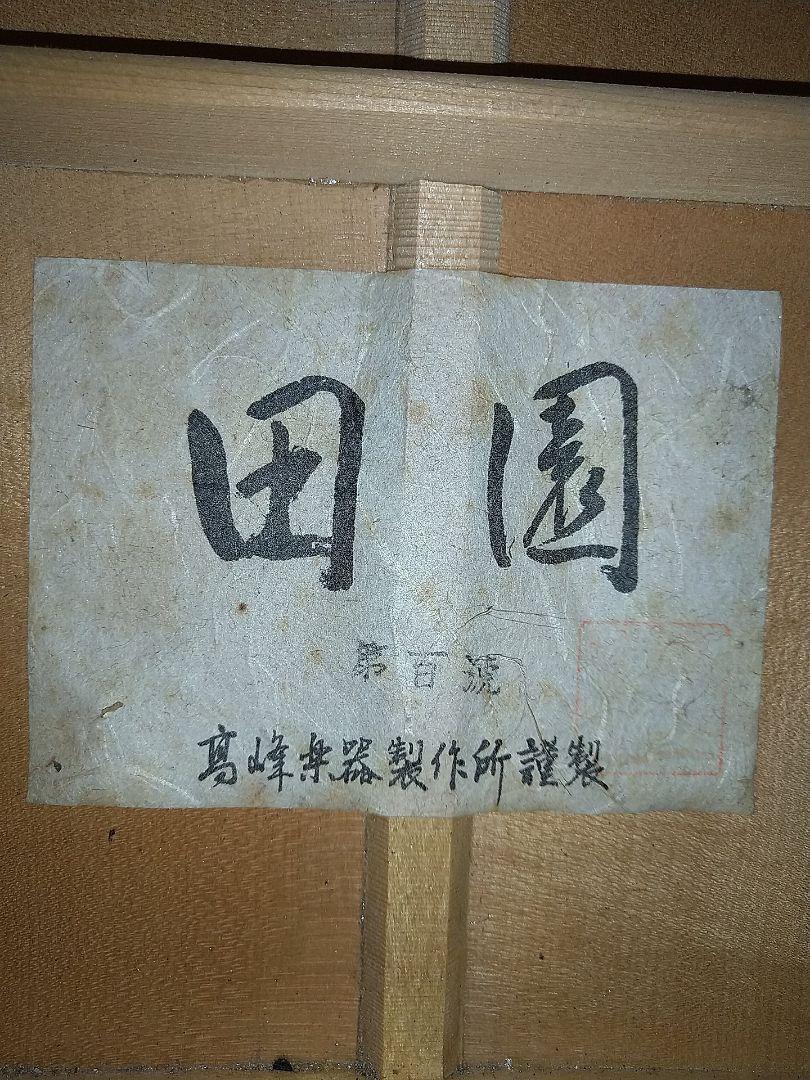 田園
第百號
高峰楽器製作所謹製